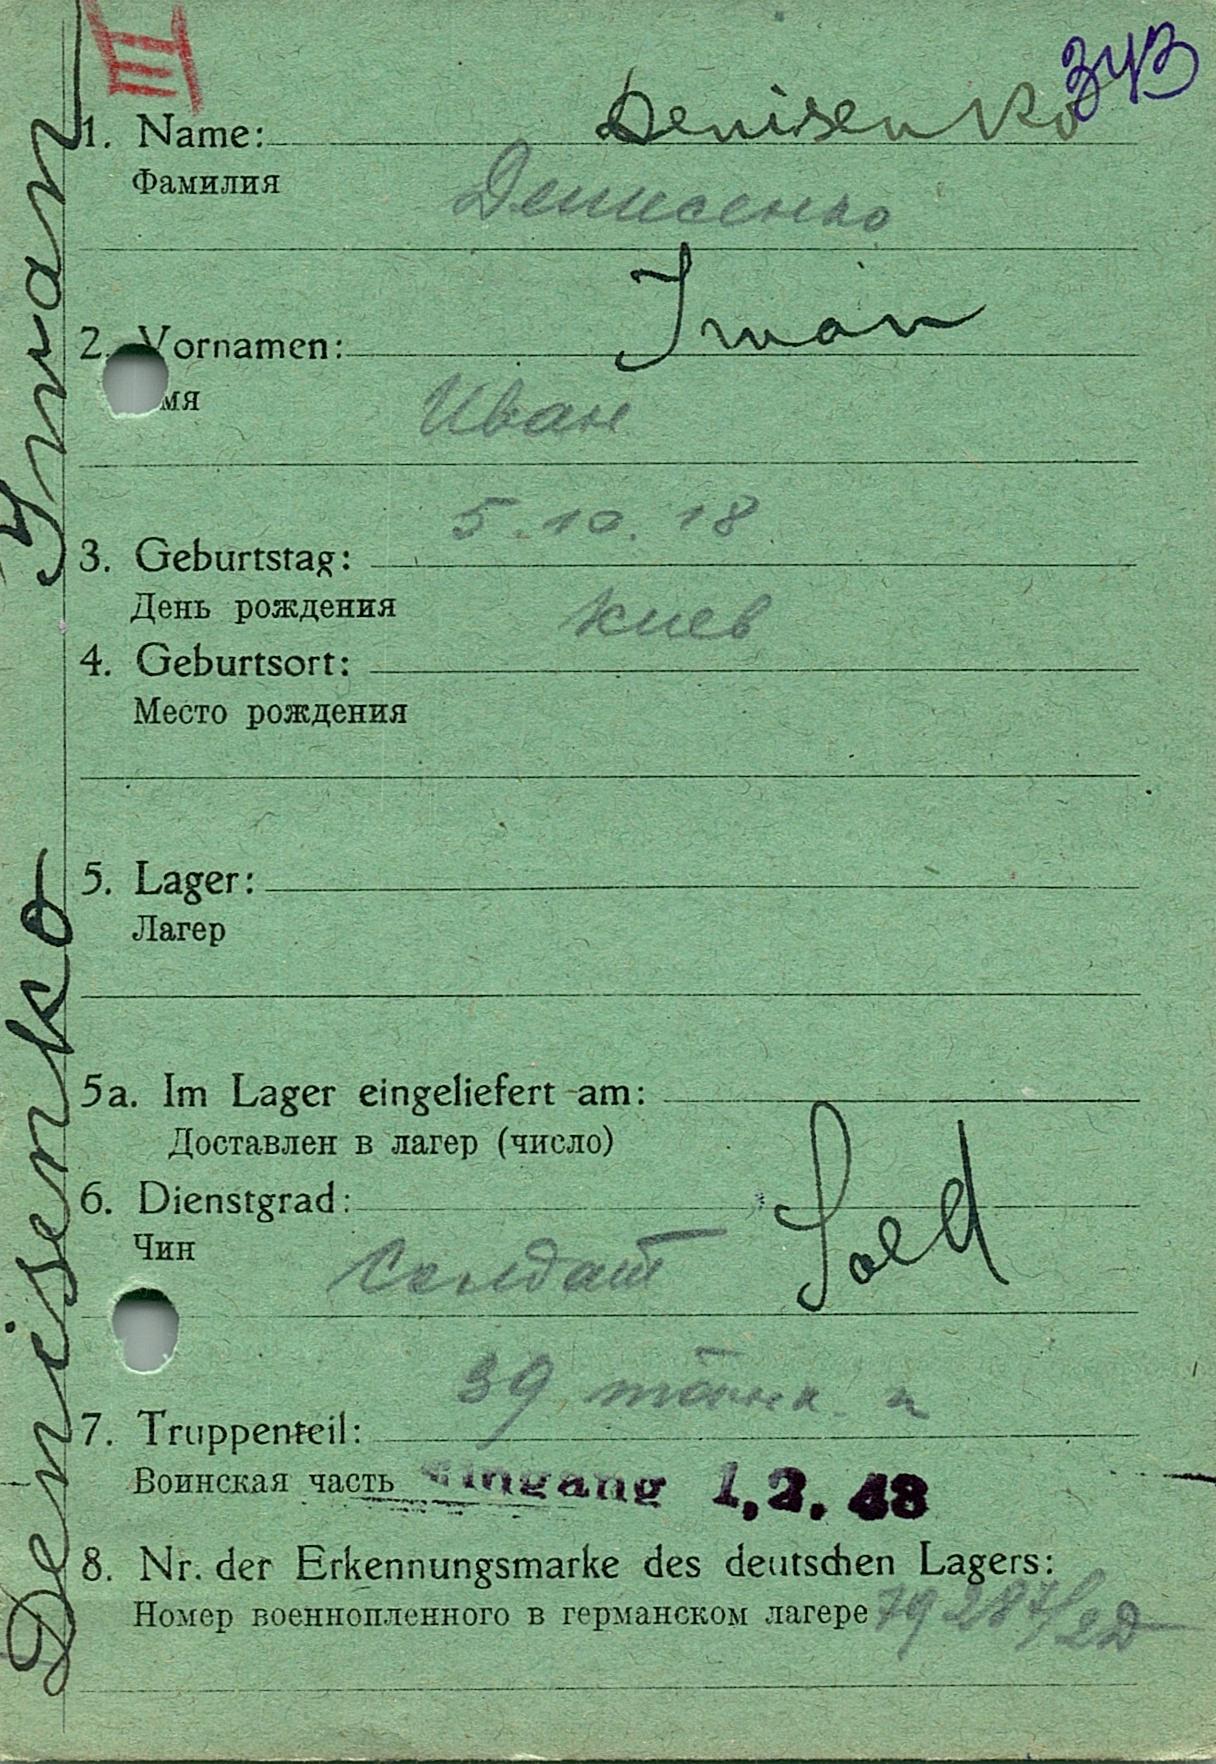 III
343
1. Name: Denisenko
Фамилия
Денисенко
2. Vornamen: Iwan
мя
Иван
5.10.18
3. Geburtstag:
День рождения
Киев
4. Geburtsort:
Место рождения
5. Lager:
Лагер
5a. Im Lager eingeliefert am:
Доставлен в лагер (число)
6. Dienstgrad: Sold
Чин
Солдат
39 танк. п
7. Truppenteil:
Воинская часть
Eingang 1.2.43
8. Nr. der Erkennungsmarke des deutschen Lagers:
Номер военнопленного в германском лагере 79287/2D
Denisenko Iwan